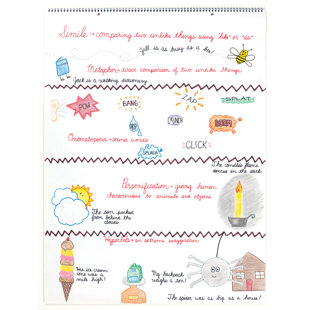 Simile → comparing two unlike things using "like" or "as"
Jill is as busy as a bee!
Metaphor → direct comparison of two unlike things
Jack is a walking dictionary.
POW
BANG
SPLAT
CRUNCH
SPLASH
CLICK
Onomatopoeia → sound words
The candle's flame
dances in the dark.
Personification → giving human
characteristics to animals and objects
The sun peeked
from behind the
clouds
Hyperbole → an extreme exaggeration
His ice cream
cone was a
mile high!
My backpack
weighs a ton!
The spider was as big as a house!